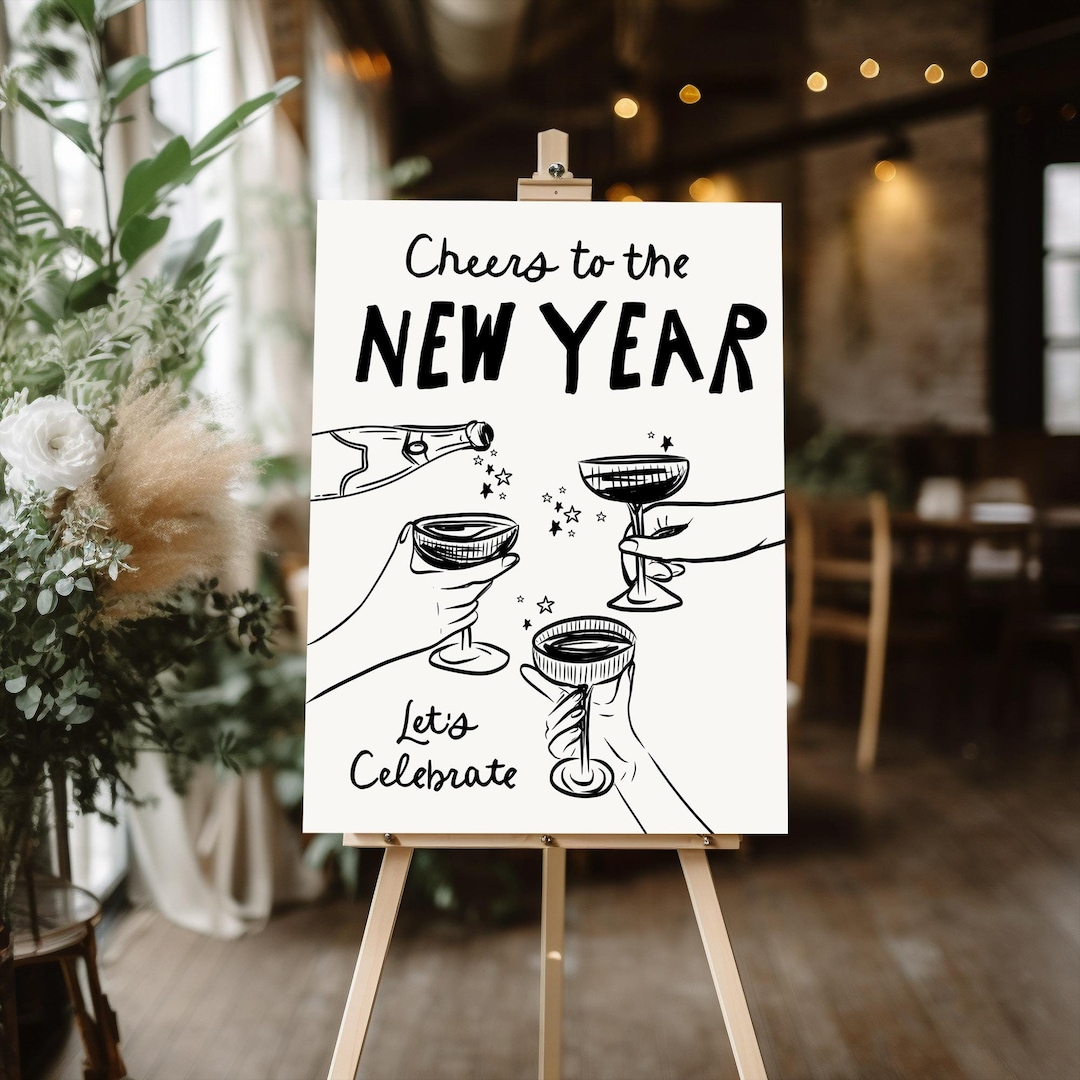 Cheers to the
NEW YEAR
Let's
Celebrate